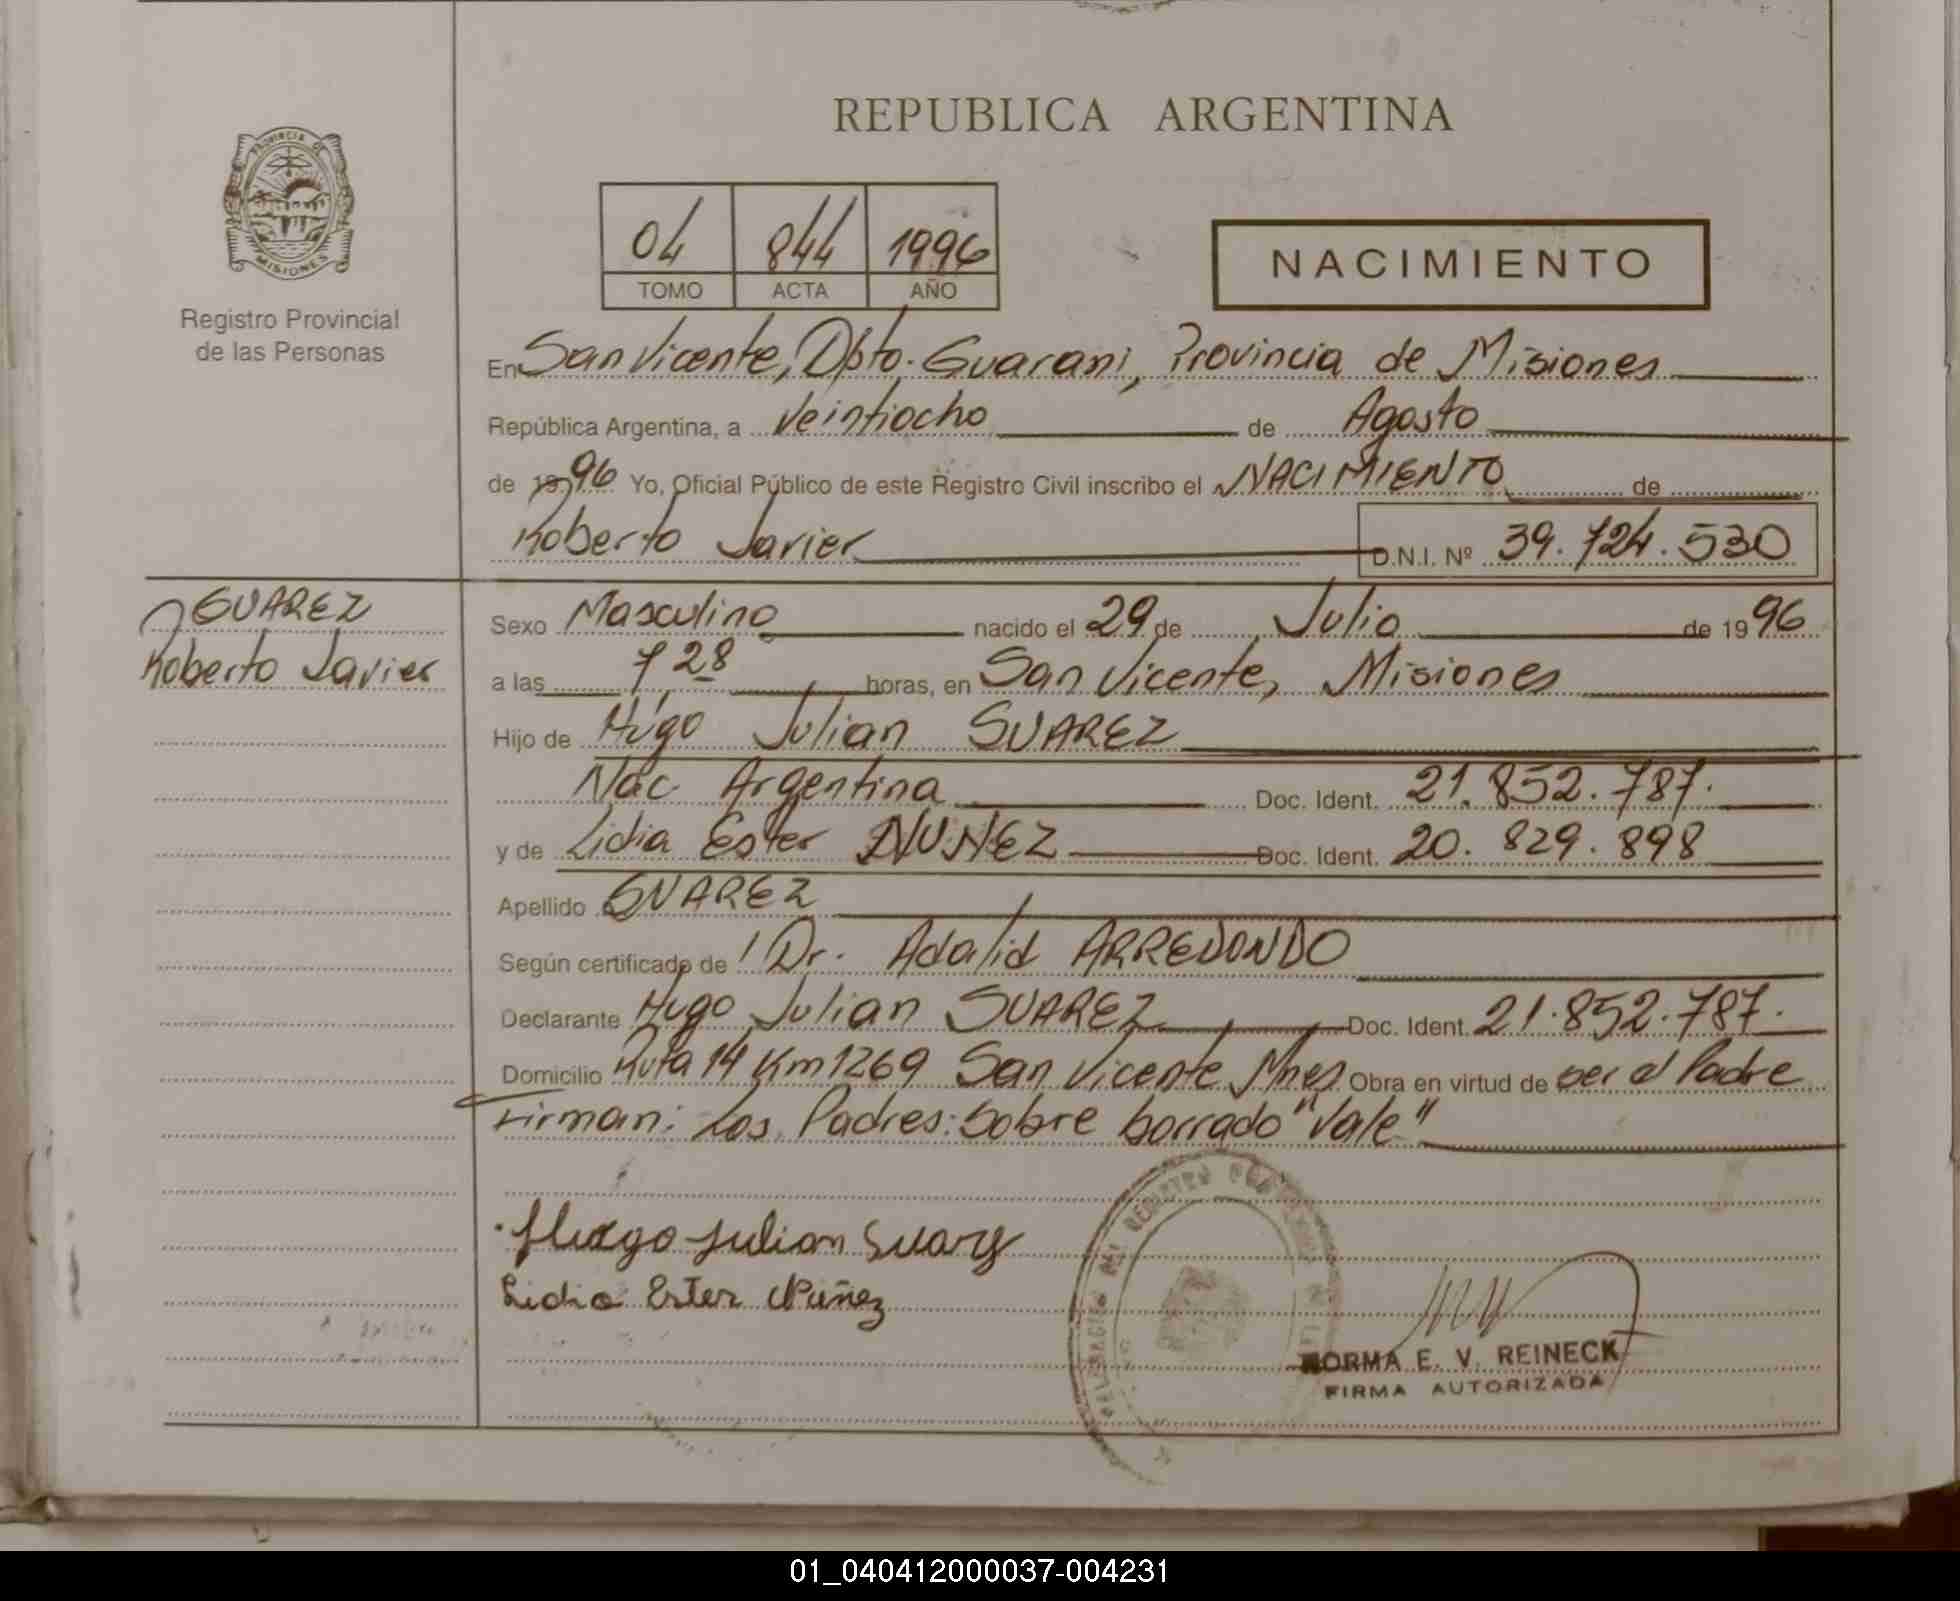 REPUBLICA ARGENTINA
PROVINCIA DE
MISIONES
Registro Provincial
de las Personas
04 844 1996
TOMO ACTA AÑO
NACIMIENTO
En San Vicente, Dpto. Guarani, Provincia de Misiones
República Argentina, a Veintiocho de Agosto
de 1996 Yo, Oficial Público de este Registro Civil inscribo el NACIMIENTO de
Roberto Javier D.N.I. Nº 39.724.530
SUAREZ
Roberto Javier
Sexo Masculino nacido el 29 de Julio de 1996
a las 7,28 horas, en San Vicente, Misiones
Hijo de Hugo Julian SUAREZ
Nac. Argentina Doc. Ident. 21.852.787.
y de Lidia Ester NUÑEZ Doc. Ident. 20.829.898
Apellido SUAREZ
Según certificado de Dr. Adalid ARREDONDO
Declarante Hugo Julian SUAREZ Doc. Ident. 21.852.787.
Domicilio Ruta 14 Km 1269 San Vicente Mnes Obra en virtud de ser el Padre
Firman: Los Padres: Sobre borrado "Vale"
Hugo Julian Suarez
Lidia Ester Nuñez
NORMA E. V. REINECK
FIRMA AUTORIZADA
01_040412000037-004231